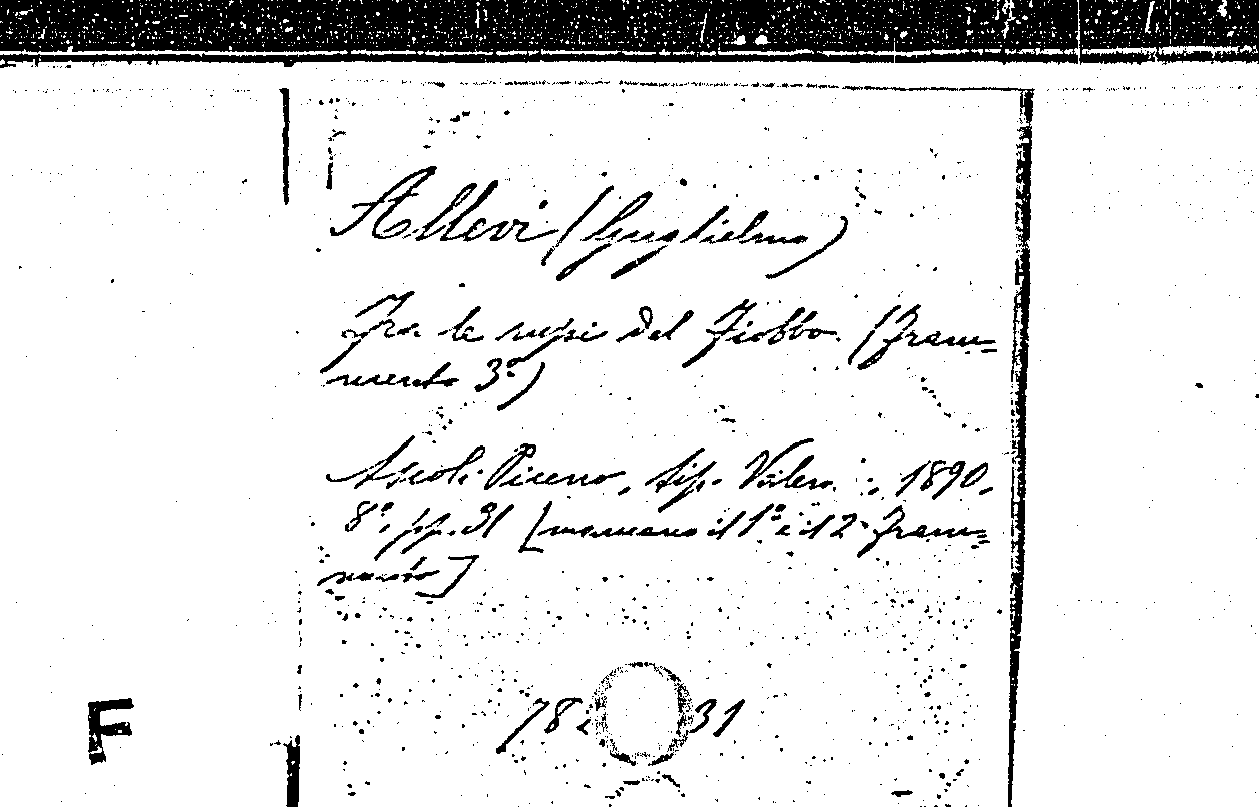 Allevi (Guglielmo)
Fra le rupi del Fiobbo. (Fram=
mento 3º)
Ascoli Piceno, tip. Valero , 1890.
8º, pp. 31 [mancano il 1º e il 2º Fram=
mento]
782 31
F